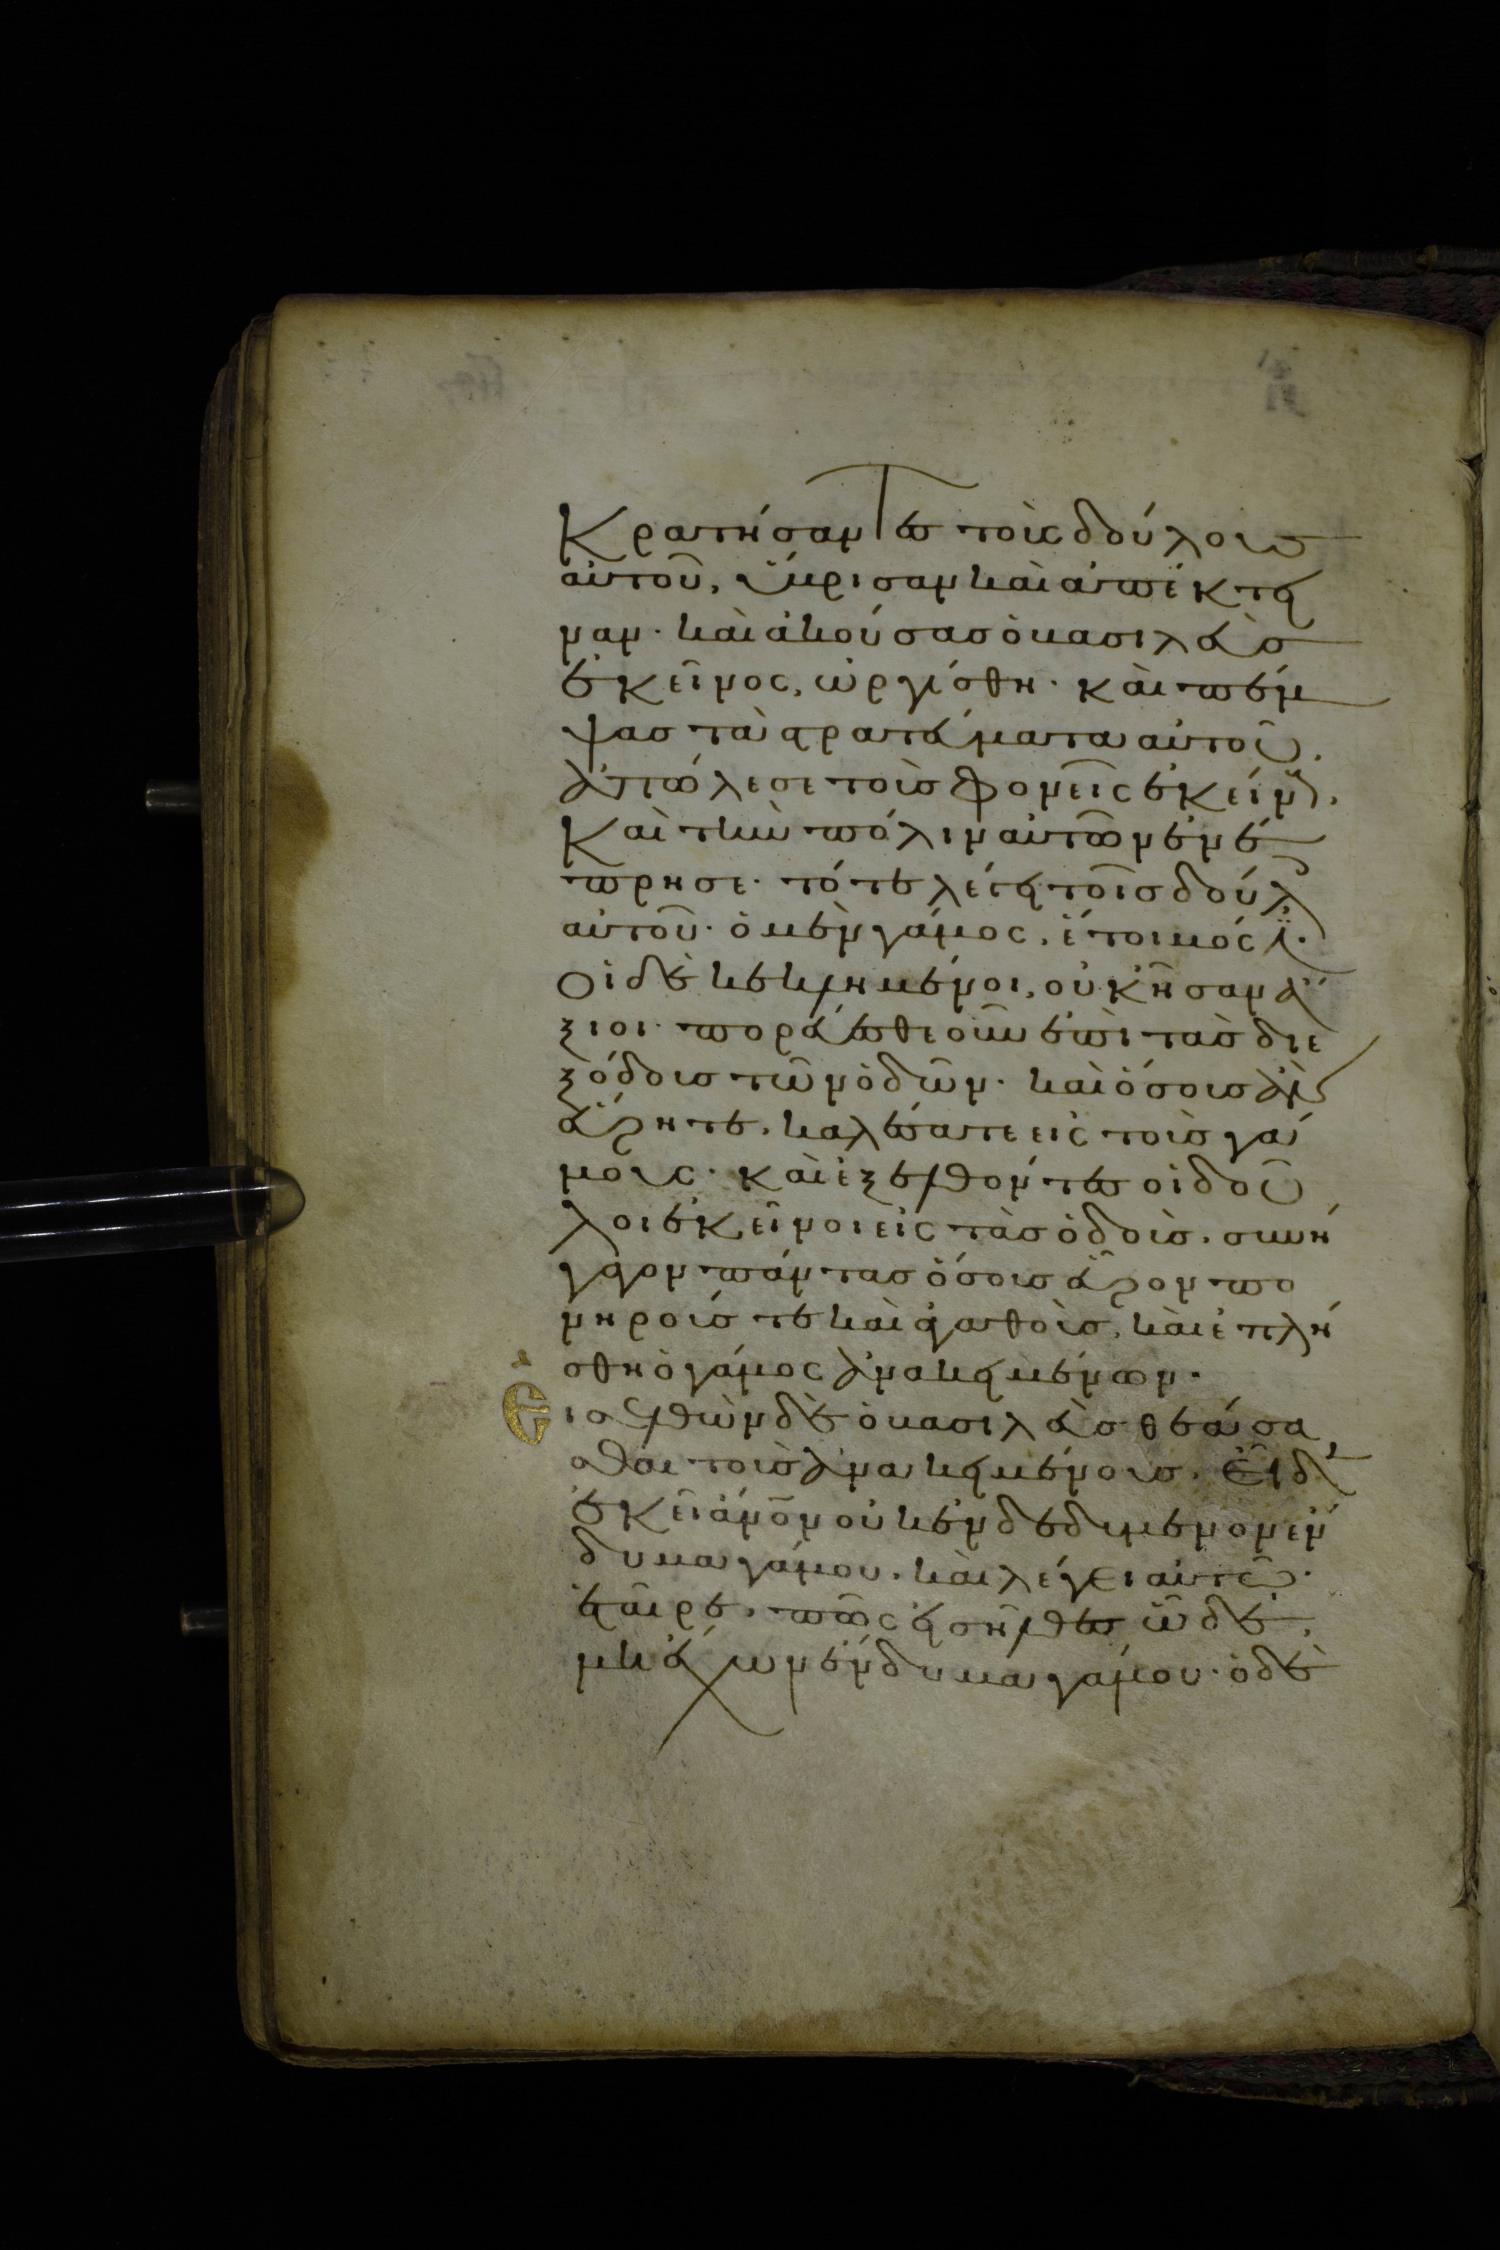 Κρατήσαντες τοὺς δούλους
αὐτοῦ, ὕβρισαν καὶ ἀπέκτει
ναν· καὶ ἀκούσας ὁ βασιλεὺς
ἐκεῖνος, ὠργίσθη· καὶ πέμ
ψας τὰ στρατεύματα αὐτοῦ,
ἀπώλεσε τοὺς φονεῖς ἐκείν(ους),
Καὶ τὴν πόλιν αὐτῶν ἐνέ
πρησε· τότε λέγει τοῖς δούλ(οις)
αὐτοῦ· ὁ μὲν γάμος, ἕτοιμός ἐ(στιν)·
Οἱ δὲ κεκλημένοι, οὐκ ἦσαν ἄ
ξιοι· πορεύεσθε οὖν ἐπὶ τὰς διε
ξόδους τῶν ὁδῶν· καὶ ὅσους ἂν
εὕρητε, καλέσατε εἰς τοὺς γά
μους· καὶ ἐξελθόντες οἱ δοῦ
λοι ἐκεῖνοι εἰς τὰς ὁδοὺς, συνή
γαγον πάντας ὅσους εὗρον πο
νηρούς τε καὶ ἀγαθοὺς, καὶ ἐπλή
σθη ὁ γάμος ἀνακειμένων·
Εἰσελθὼν δὲ ὁ βασιλεὺς θεάσα
σθαι τοὺς ἀνακειμένους, εἶδ(εν)
ἐκεῖ ἄνον οὐκ ἐνδεδυμένον ἔν
δυμα γάμου, καὶ λέγει αὐτῶ·
ἑταῖρε, πῶς εἰσῆλθες ὧδε,
μὴ ἔχων ἔνδυμα γάμου· ὁ δὲ